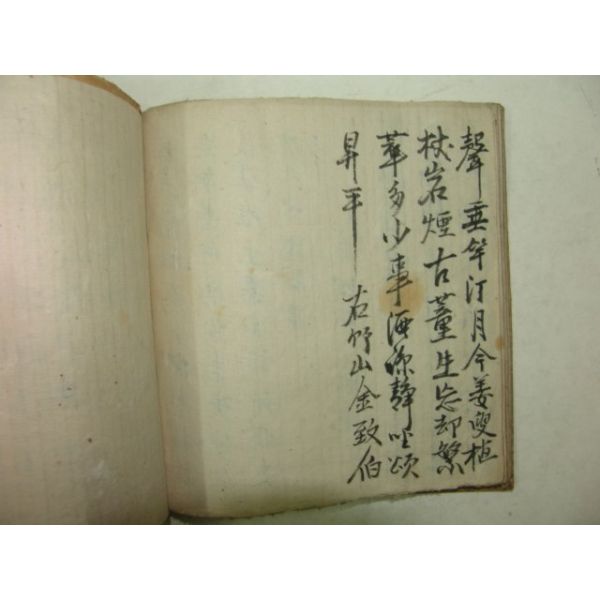 聲垂竿汀月今姜叟植
杖岩煙古董生忘却繁
華多少事海靜頌
昇平 右竹山金致伯